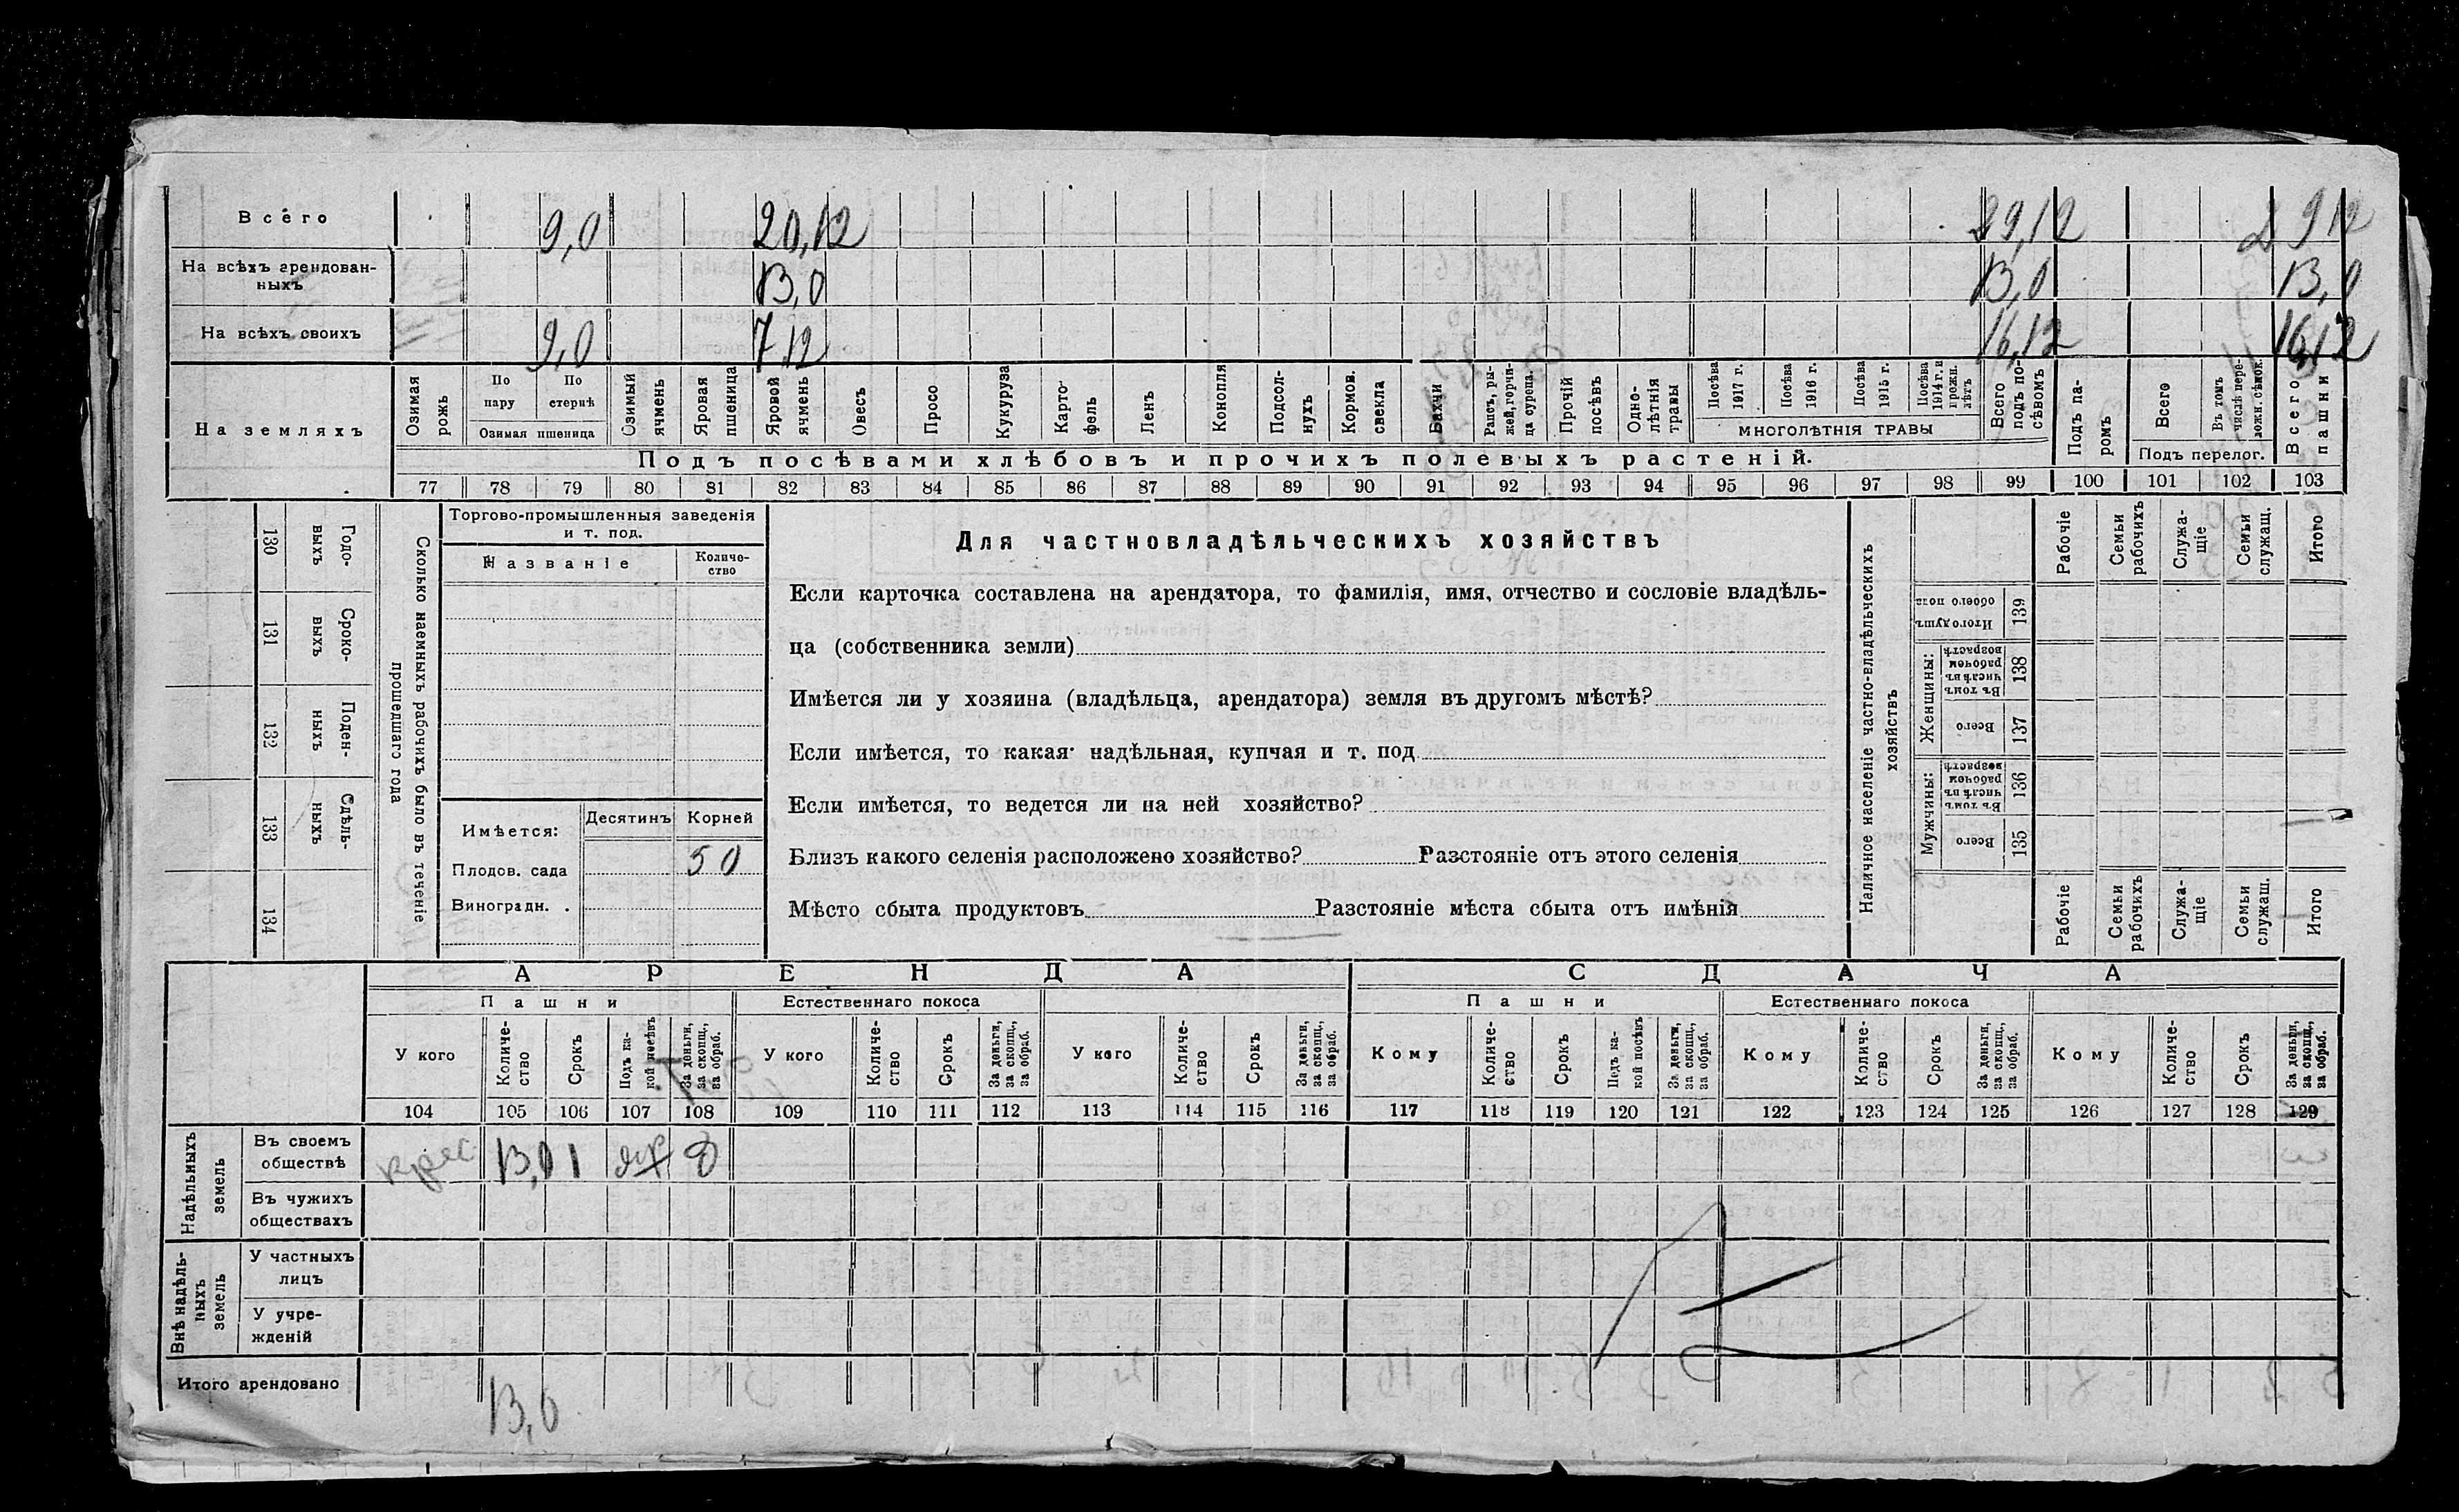 Всего 9,0 20,12 29,12 29 12
На всѣхъ арендован-
ныхъ 13,0 13,0 13,0
На всѣхъ своихъ 9,0 7,12 16,12 16,12
На земляхъ
Озимая рожь
По пару
По стернѣ
Озимая пшеница
Озимый ячмень
Яровая пшеница
Яровой ячмень
Овесъ
Просо
Кукуруза
Карто-
фель
Ленъ
Конопля
Подсол-
нухъ
Кормов. свекла
Бахчи
Рапсъ, ры-
жей, горчи-
ца сурепа.
Прочій посѣвъ
Одно-
лѣтнія травы
Посѣва 1917 г.
Посѣва 1916 г.
Посѣва 1915 г.
Посѣва 1914 г. и прежн. лѣтъ
МНОГОЛѢТНІЯ ТРАВЫ
Всего подъ по-
сѣвомъ
Подъ па-
ромъ
Всего
Въ томъ числѣ пере-
ложн. сѣнок.
Подъ перелог.
Всего пашни
Подъ посѣвами хлѣбовъ и прочихъ полевыхъ растеній.
77 78 79 80 81 82 83 84 85 86 87 88 89 90 91 92 93 94 95 96 97 98 99 100 101 102 103
Сколько наемныхъ рабочихъ было въ теченіе
прошедшаго года
Годо-
выхъ
130
Сроко-
выхъ
131
Поден-
ныхъ
132
Сдѣль-
ныхъ
133
134
Торгово-промышленныя заведенія
и т. под.
Названіе
Количе-
ство
Имѣется: Десятинъ Корней
Плодов. сада 50
Виноградн.
Для частновладѣльческихъ хозяйствъ
Если карточка составлена на арендатора, то фамилія, имя, отчество и сословіе владѣль-
ца (собственника земли)
Имѣется ли у хозяина (владѣльца, арендатора) земля въ другомъ мѣстѣ?
Если имѣется, то какая: надѣльная, купчая и т. под
Если имѣется, то ведется ли на ней хозяйство?
Близъ какого селенія расположено хозяйство? Разстояніе отъ этого селенія
Мѣсто сбыта продуктовъ Разстояніе мѣста сбыта отъ имѣнія
Наличное населеніе частно-владѣльческихъ
хозяйствъ
Рабочіе
Семьи рабочихъ
Служа-
щіе
Семьи служащ.
Итого
Итого душъ обоего пола
139
Женщины:
Въ томъ числѣ въ рабочемъ возрастѣ
138
Всего
137
Мужчины:
Въ томъ числѣ въ рабочемъ возрастѣ
136
Всего
135
Рабочіе
Семьи рабочихъ
Служа-
щіе
Семьи служащ.
Итого
АРЕНДА СДАЧА
Пашни Естественнаго покоса Пашни Естественнаго покоса
У кого
Количе-
ство
Срокъ
Подъ ка-
кой посѣвъ
За деньги, за скопщ., за обраб.
У кого
Количе-
ство
Срокъ
За деньги, за скопщ., за обраб.
У кого
Количе-
ство
Срокъ
За деньги, за скопщ., за обраб.
Кому
Количе-
ство
Срокъ
Подъ ка-
кой посѣвъ
За деньги, за скопщ., за обраб.
Кому
Количе-
ство
Срокъ
За деньги, за скопщ., за обраб.
Кому
Количе-
ство
Срокъ
За деньги, за скопщ., за обраб.
104 105 106 107 108 109 110 111 112 113 114 115 116 117 118 119 120 121 122 123 124 125 126 127 128 129
Надѣльныхъ земель
Въ своемъ
обществѣ крес 13,0 1 яр д
Въ чужихъ
обществахъ
Внѣ надѣль-
ныхъ земель
У частныхъ
лицъ
У учре-
жденій
Итого арендовано 13,0